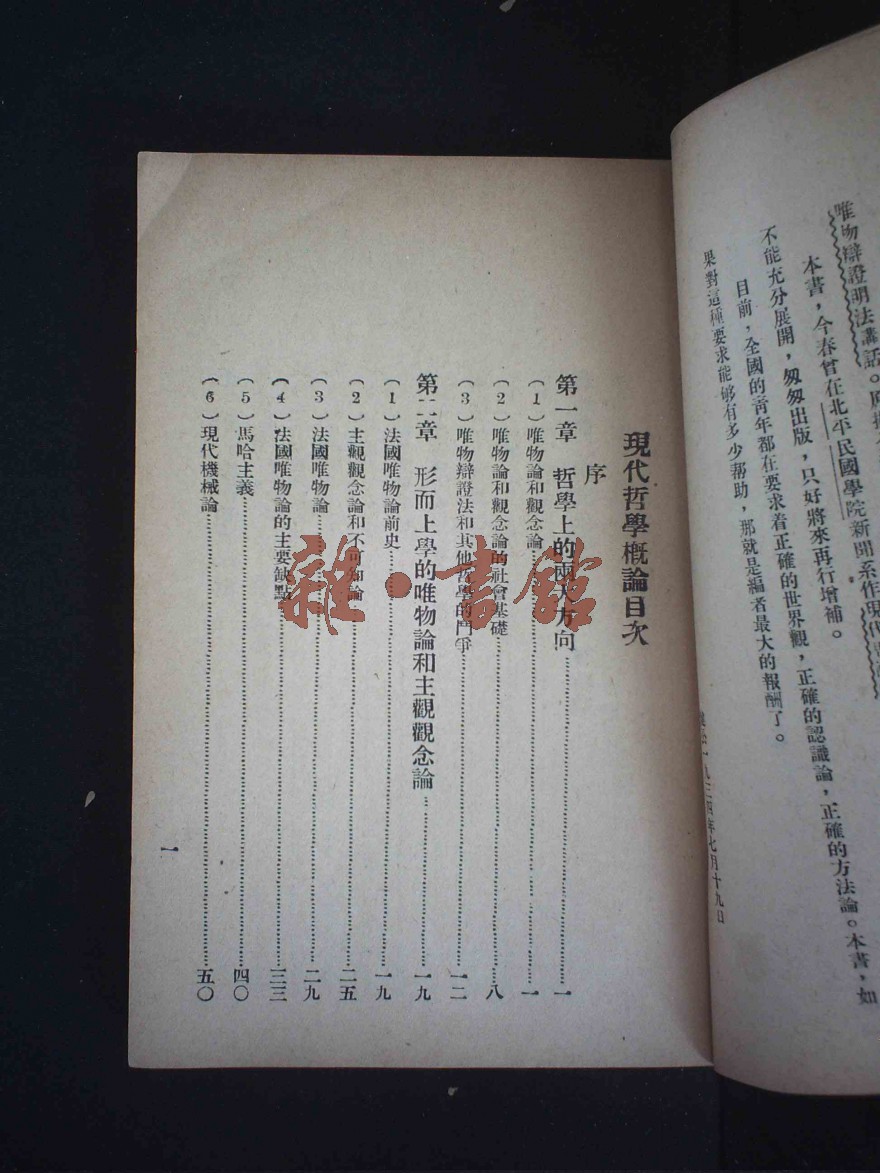 唯物辯證明法講話。
本書，今春曾在北平民國學院新聞系作現代
不能充分展開，匆匆出版，只好將來再行增補。
目前，全國的青年都在要求着正確的世界觀，正確的認識論，正確的方法論。本書，如
果對這種要求能够有多少幫助，那就是編者最大的報酬了。
一九三四年七月十九日
現代哲學概論目次
序
第一章 哲學上的兩大方向…………一
（1）唯物論和觀念論…………一
（2）唯物論和觀念論的社會基礎…………八
（3）唯物辯證法和其他哲學的鬥爭…………一二
第二章 形而上學的唯物論和主觀觀念論…………一九
（1）法國唯物論前史…………一九
（2）主觀觀念論和不可知論…………二五
（3）法國唯物論…………二九
（4）法國唯物論的主要缺點…………三三
（5）馬哈主義…………四〇
（6）現代機械論…………五〇
一
雜·書館